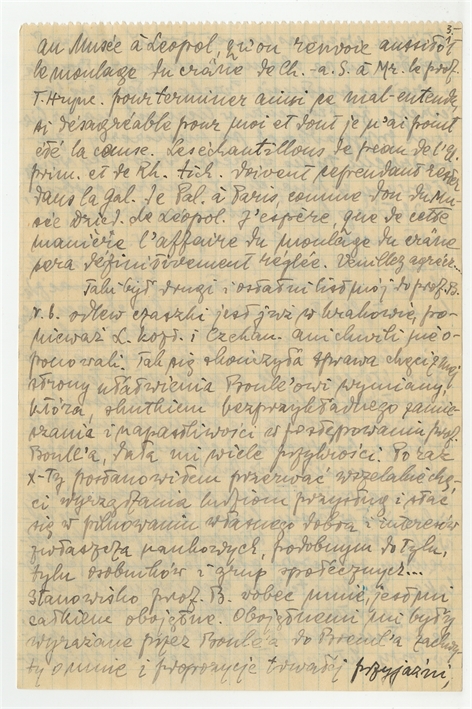 3.
au Musée à Léopol, qu'on renvoie aussitôt
le moulage du crâne de Ch.-a.-S. à Mr. le prof.
T. Hrync. pour terminer ainsi ce mal-entendu
si désagréable pour moi et dont je n'ai point
été la cause. Les échantillons de peau de l'El.
prim. et de Rh. tich. doivent cependant rester
dans la Gal. de Pal. à Paris, comme don du Mu-
sée Dzied. de Léopol. J'espère, que de cette
manière l'affaire du moulage du crâne
sera définitivement réglée. Veuillez agréer...
Taki był drugi i ostatni list mój do prof. B.
N.b. odlew czaszki jest już w Krakowie, po-
nieważ Ł. i Czekan. ani chwili nie o-
ponowali. Tak się skończyła sprawa chęci z mej
strony ułatwienia Boule'owi wymiany,
która, skutkiem bezprzykładnego zamie-
szania i napastliwości w postępowaniu prof.
Boule'a, dała mi wiele przykrości. Po raz
x-ty postanowiłem przerwać wszelakie chę-
ci wyrządzania ludziom przysług i stać
się w pilnowaniu własnego dobra i interesów
zwłaszcza naukowych, podobnym do tylu,
tylu osobników i grup społecznych...
Stanowisko prof. B. wobec mnie, jest mi
całkiem obojętne. Obojętnemi mi były
wyrażane przez Boule'a do Breuil'a zachwy-
ty o mnie i propozycje trwałej przyjaźni,